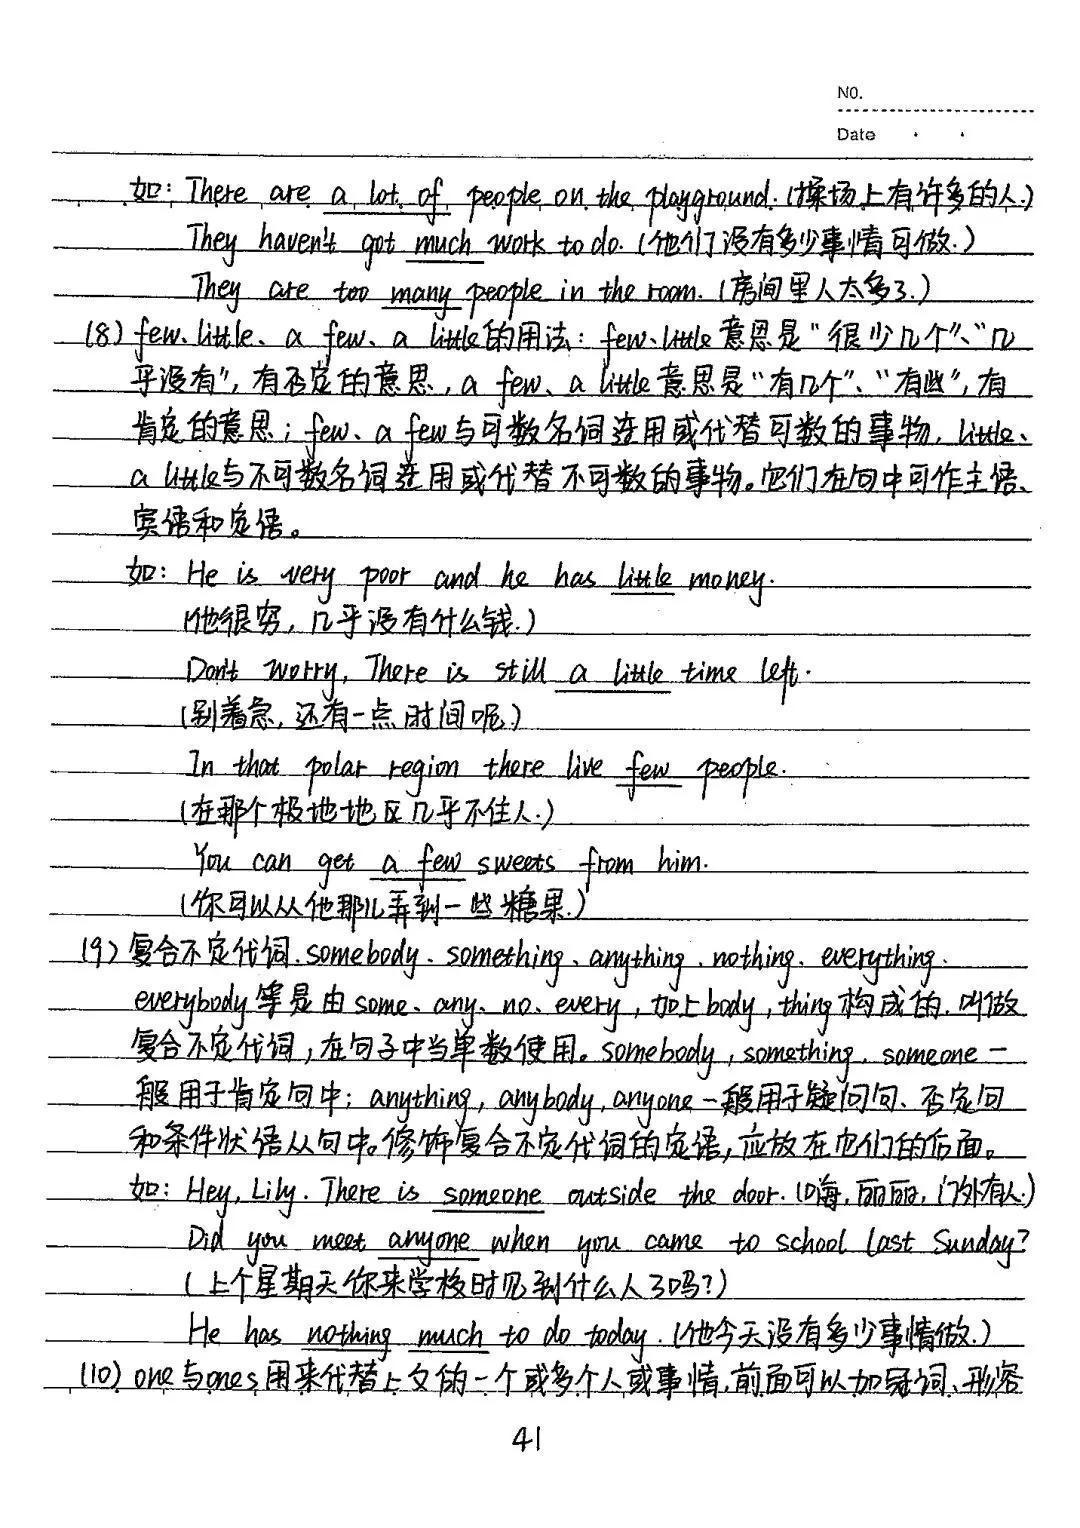 NO.
Date
如: There are a lot of people on the playground. (操场上有许多的人.)
They haven't got much work to do. (他们没有多少事情可做.)
They are too many people in the room. (房间里人太多了.)
(8) few、little、a few、a little的用法: few、little意思是“很少几个”、“几
乎没有”, 有否定的意思, a few、a little意思是“有几个”、“有些”, 有
肯定的意思; few、a few与可数名词连用或代替可数的事物, little、
a little与不可数名词连用或代替不可数的事物。它们在句中可作主语、
宾语和定语。
如: He is very poor and he has little money.
(他很穷, 几乎没有什么钱.)
Don't worry, There is still a little time left.
(别着急, 还有一点时间呢.)
In that polar region there live few people.
(在那个极地地区几乎不住人.)
You can get a few sweets from him.
(你可以从他那儿弄到一些糖果.)
(9) 复合不定代词. somebody、something、anything、nothing、everything、
everybody等是由some、any、no、every, 加上body, thing构成的, 叫做
复合不定代词, 在句子中当单数使用。somebody, something, someone一
般用于肯定句中; anything, anybody, anyone一般用于疑问句、否定句
和条件状语从句中。修饰复合不定代词的定语, 应放在它们的后面。
如: Hey, Lily. There is someone outside the door. (嗨, 丽丽, 门外有人.)
Did you meet anyone when you came to school last Sunday?
(上个星期天你来学校时见到什么人了吗?)
He has nothing much to do today. (他今天没有多少事情做.)
(10) one与ones用来代替上文的一个或多个人或事情, 前面可以加冠词、形容
41